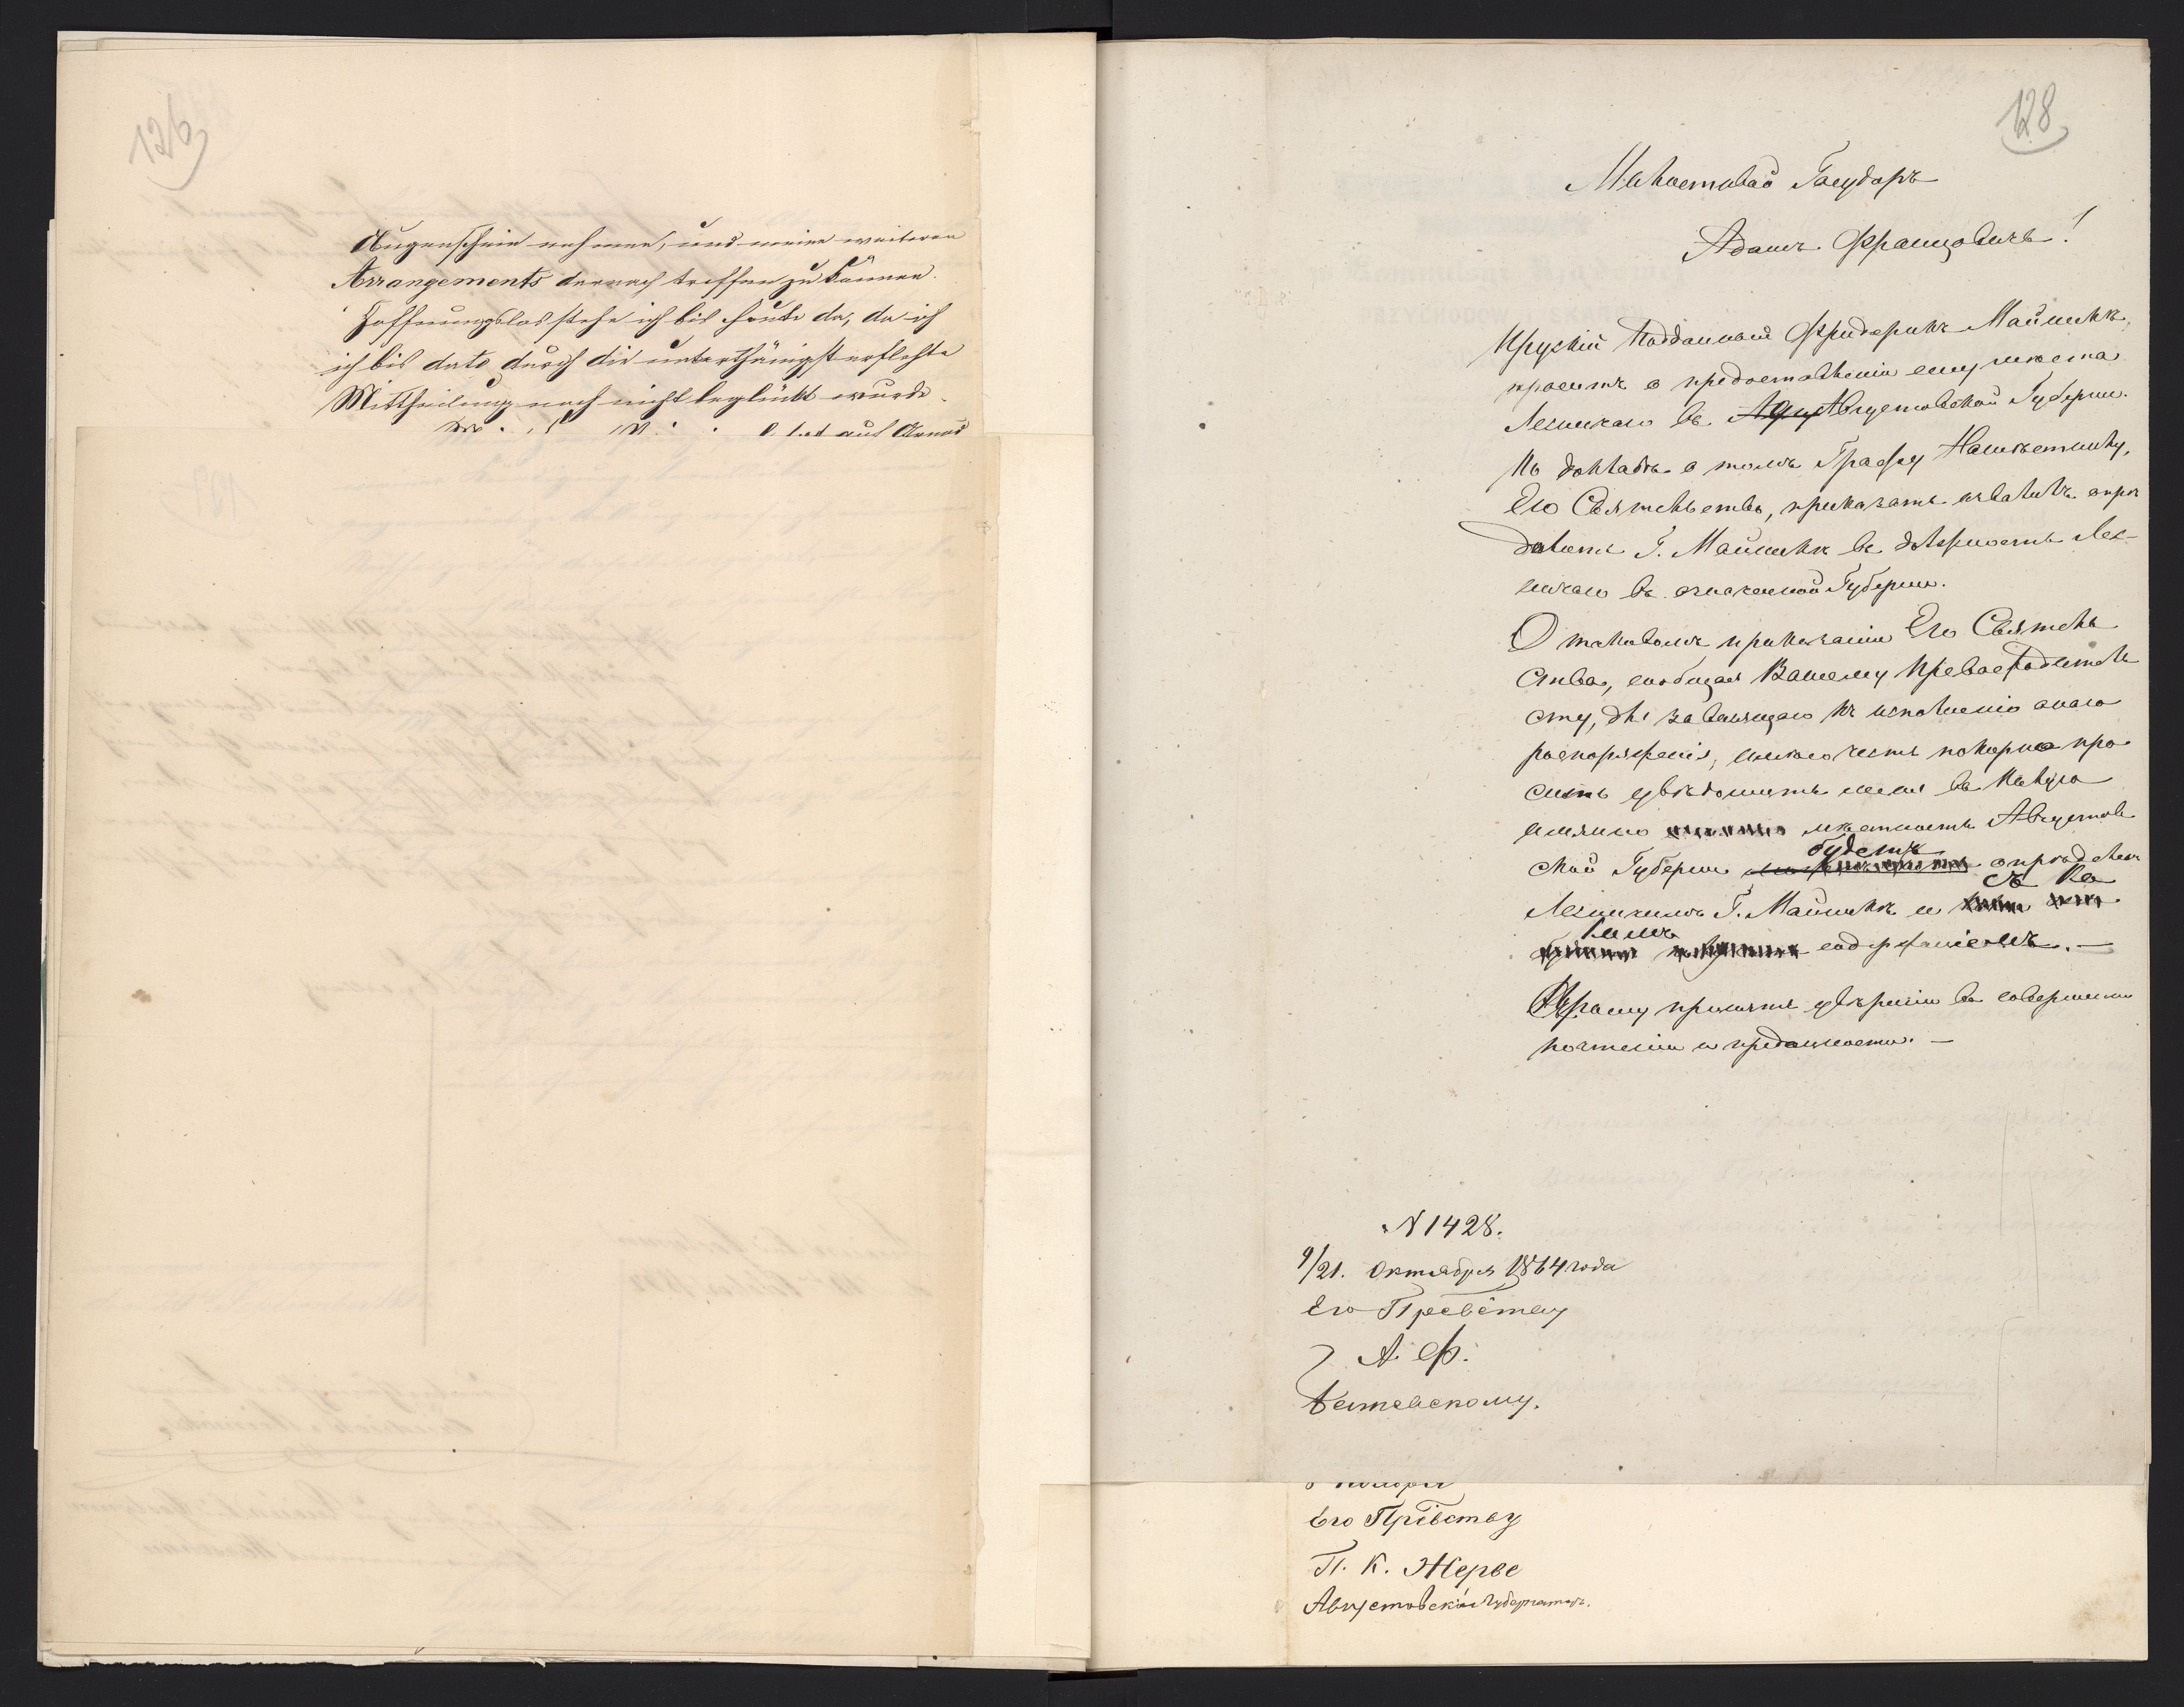 126
Augenschein nehmen, und meine weiteren
Arrangements darnach treffen zu können.
Hoffnungslos stehe ich bis heute da, da ich
ich bis dato durch die unterthänigst erflehte
Mittheilung noch nicht beglückt wurde.
auf
128
Милостивый Государь
Адамъ Францовичъ!
Прускій Подданный Фридерикъ Майншкъ,
проситъ о предоставленіи ему мѣста
Лесничаго въ Августовской Губерніи.
По докладѣ о томъ Графу Намѣстнику,
Его Сіятельство, приказать изволилъ опре
дѣлить Г. Майншкъ въ должность Лес-
ничаго въ означенной Губерніи.
О таковомъ приказаніи Его Сіятель
ства, сообщая Вашему Превосходитель
ству, для зависящаго къ исполненію онаго
распоряженія, имѣю честь покорно про
сить увѣдомить меня въ какую
имянно мѣстность Августов
ской Губерніи будетъ опредѣленъ
Лесничимъ Г. Майншкъ и съ ка
кимъ содержаніемъ. —
Прошу принять увѣреніе въ совершенномъ
почтеніи и преданности. —
N 1428.
9/21. Октября 1864 года
Его Прев̄ству
А. Ф.
Его Прев̄ству
П. К. Жерве
Августовскій Губернаторъ.